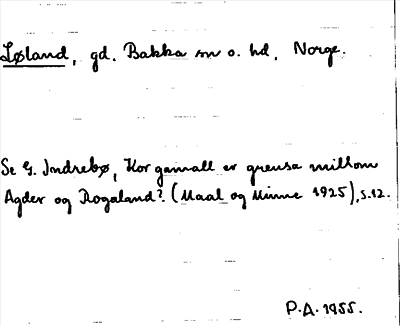 Løsland, gd. Bakka sn o. hd, Norge.
Se G. Indrebø, Kor gamall er grensa millom
Agder og Rogaland? (Maal og Minne 1925), s.12.
P.A. 1955.